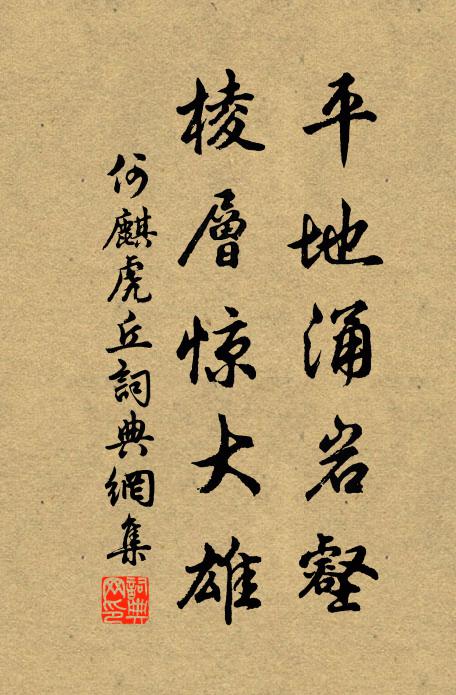 平地涌岩壑
棱層惊大雄
何麒虎丘詞典網集
詞典網印